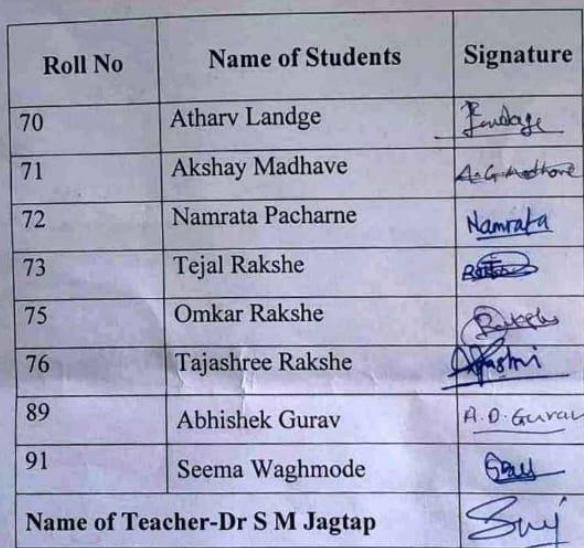 Roll No Name of Students Signature
70 Atharv Landge
71 Akshay Madhave
72 Namrata Pacharne Namrata
73 Tejal Rakshe
75 Omkar Rakshe
76 Tajashree Rakshe
89 Abhishek Gurav A.D.Gurav
91 Seema Waghmode
Name of Teacher-Dr S M Jagtap